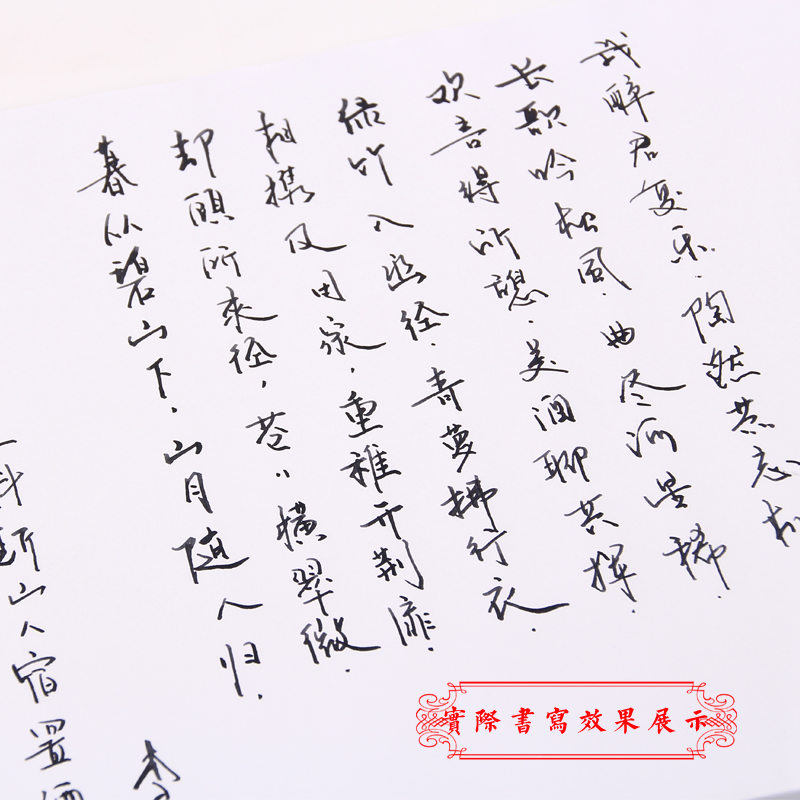 斛斯山人宿置酒
李
暮从碧山下，山月随人归．
却顾所来径，苍〃横翠微．
相携及田家，童稚开荆扉．
绿竹入幽径，青萝拂行衣．
欢言得所憩．美酒聊共挥．
长歌吟松风．曲尽河星稀．
我醉君复乐．陶然共忘机
實際書寫效果展示